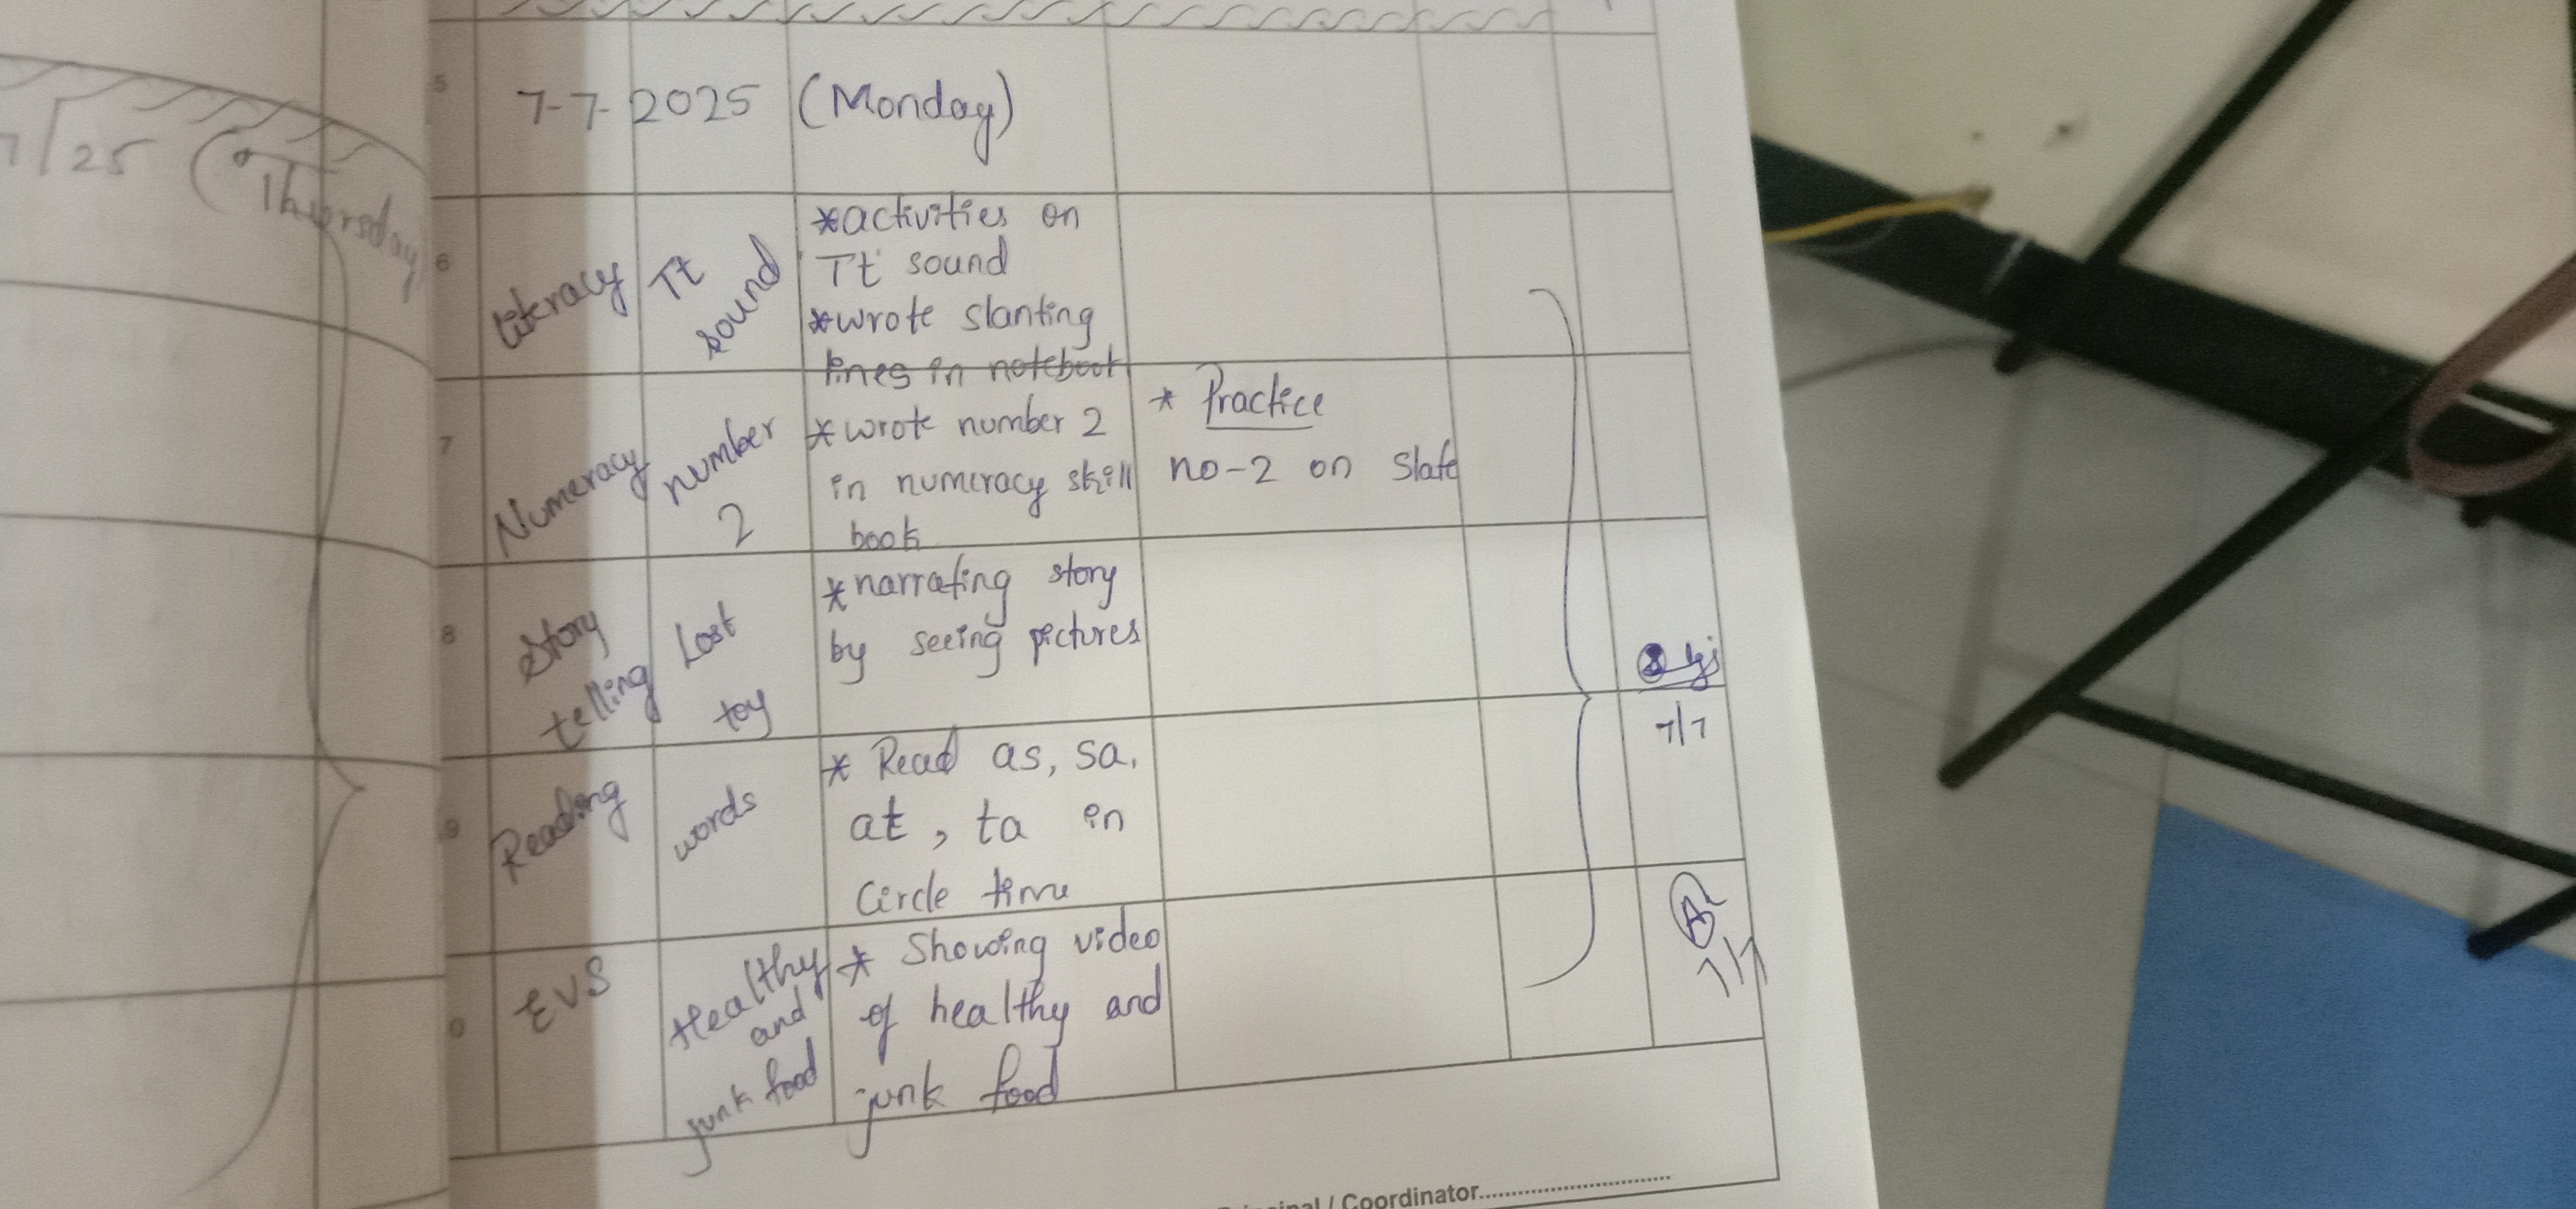 7/25 (Thursday
5
7-7-2025 (Monday)
6
Literacy
Tt
sound
*activities on
Tt sound
*wrote slanting
lines in notebook
7
Numeracy
number
2
*wrote number 2
in numeracy skill
book
* Practice
no-2 on slate
8
Story
telling
Lost
toy
*narrating story
by seeing pictures
7/7
9
Reading
words
* Read as, sa,
at, ta in
Circle time
0
EVS
Healthy
and
junk food
* Showing video
of healthy and
junk food
7/7
/ Coordinator